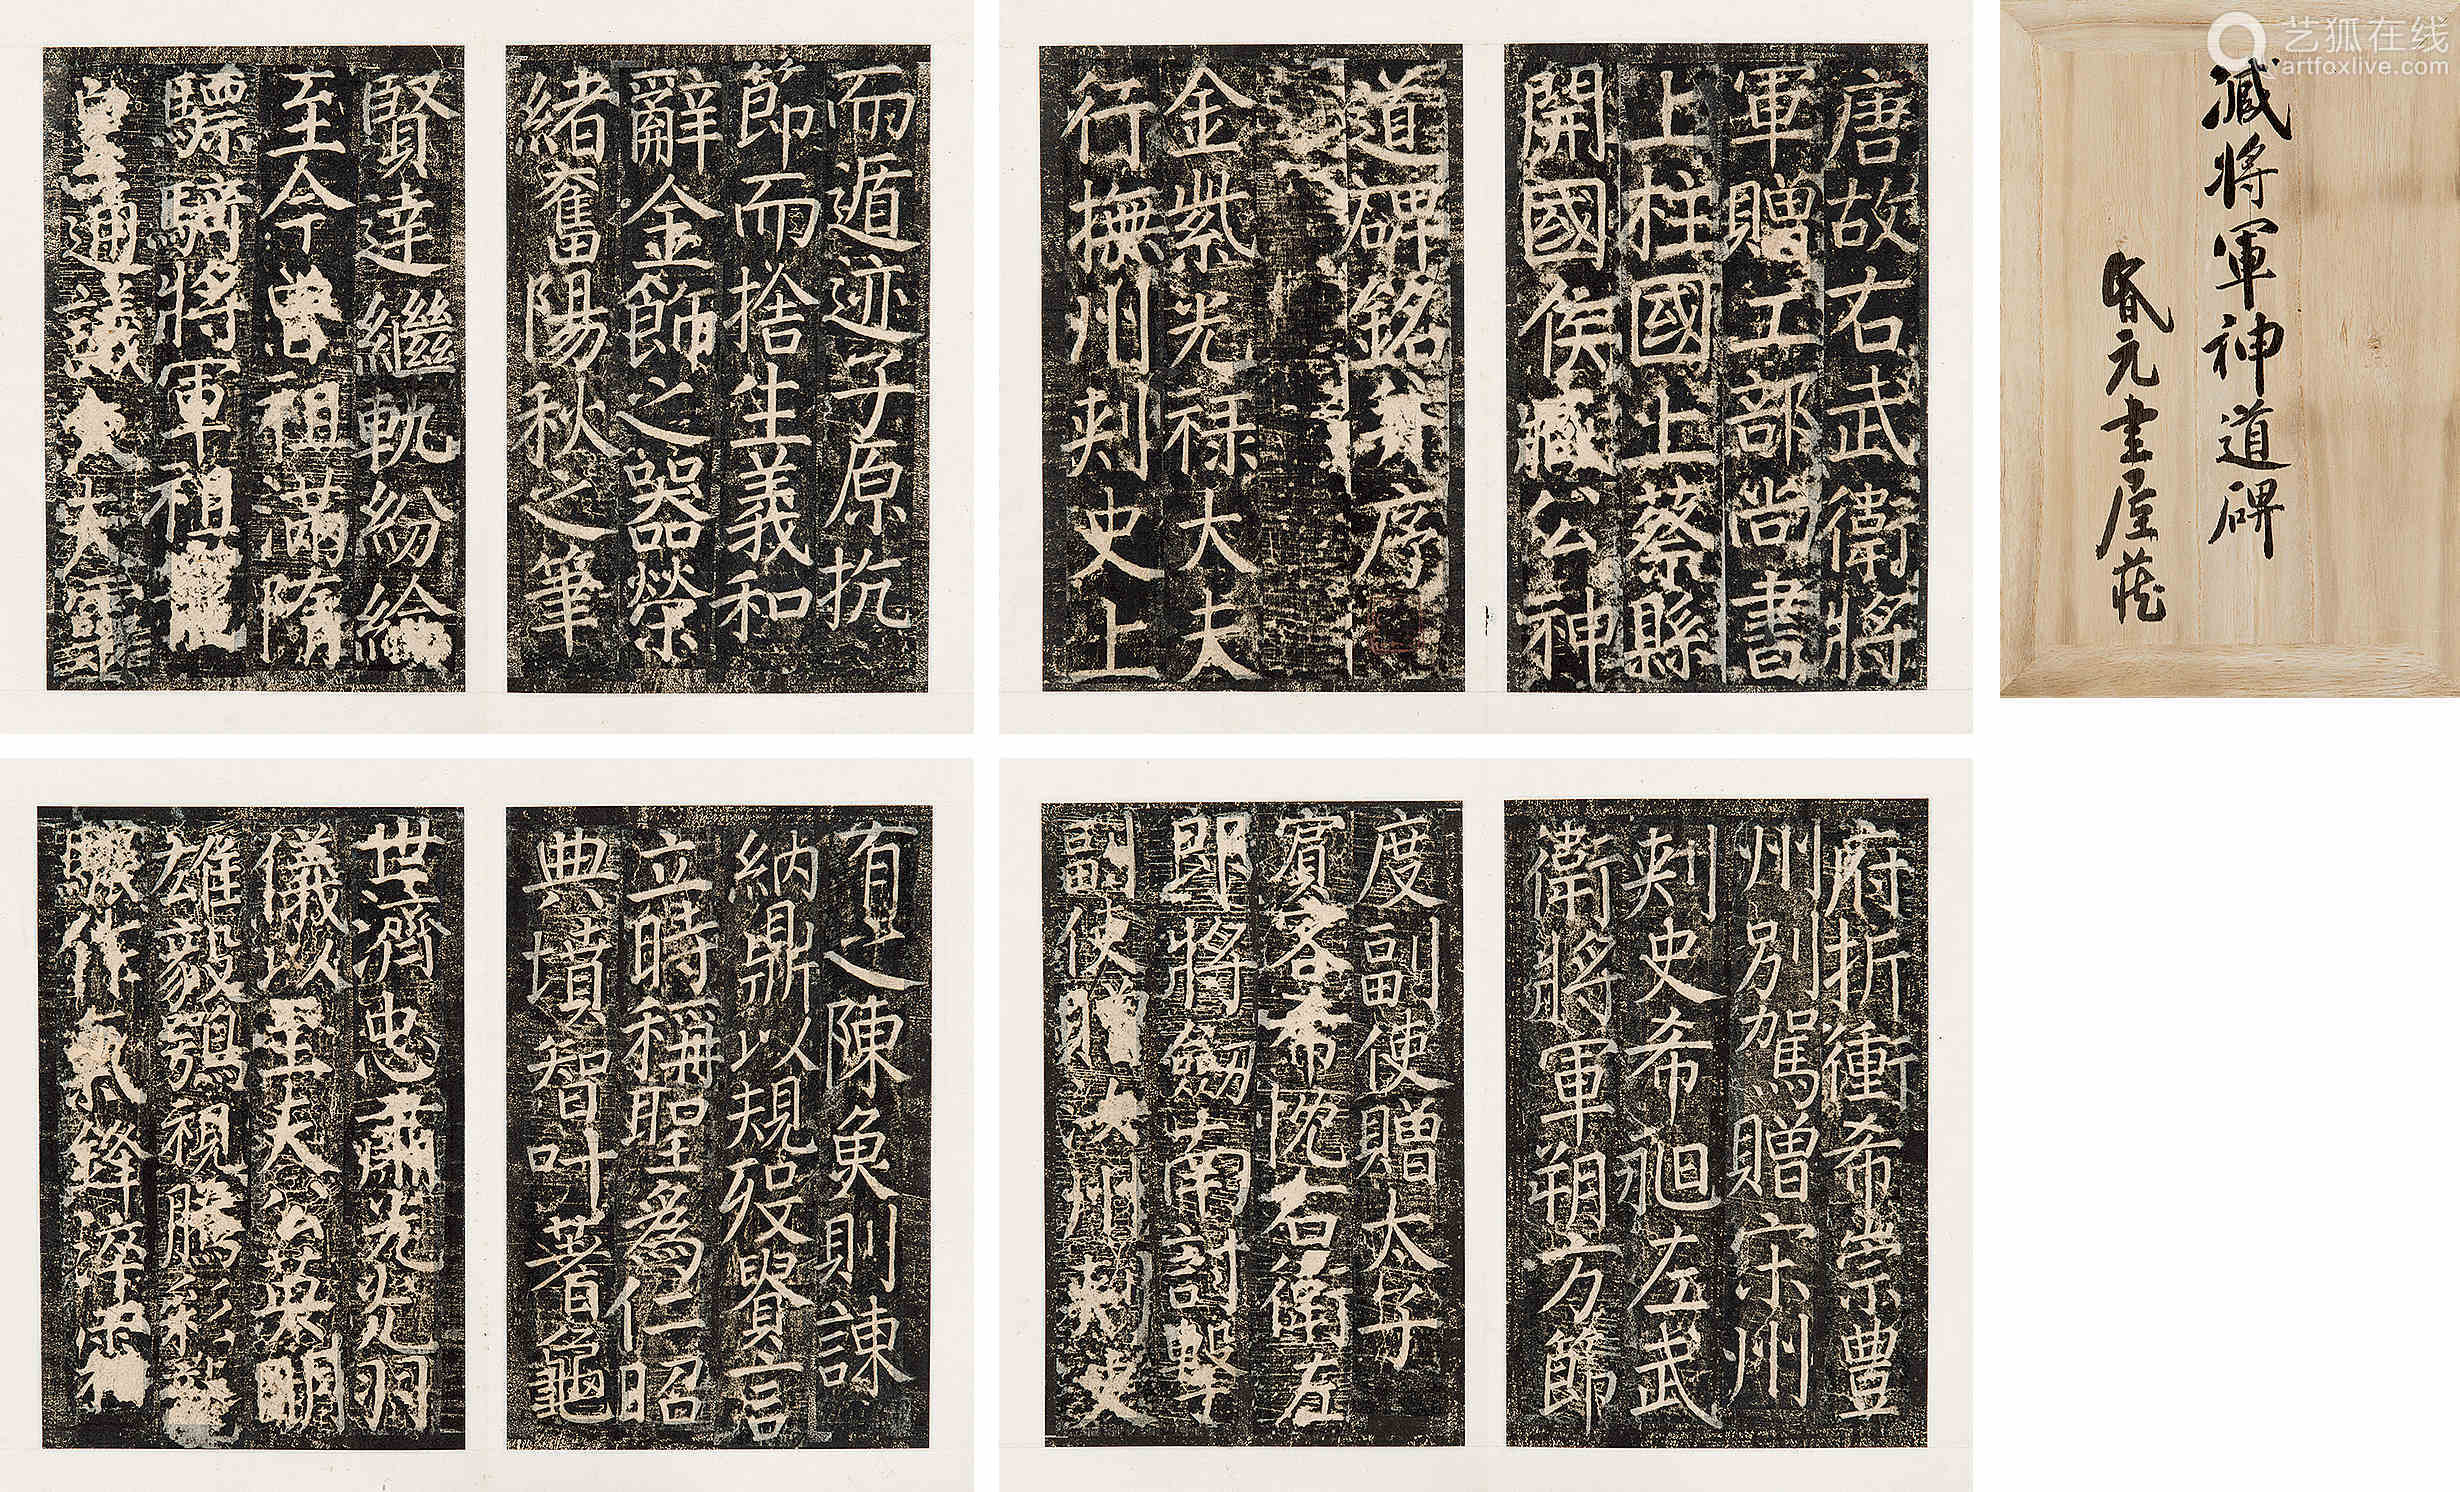 艺狐在线
artfoxlive.com
臧將軍神道碑
元書屋藏
唐故右武衛將
軍贈工部尚書
上柱國上蔡縣
開國侯臧公神
道碑銘并序
金紫光祿大夫
行撫州刺史上
而遁迹子原抗
節而捨生義和
辭金飾之器榮
緒奮陽秋之筆
賢達繼軌紛綸
至今曾祖滿隋
驃騎將軍祖寵
皇通議大夫
府折衝希崇豐
州別駕贈宋州
刺史希昶左武
衛將軍朔方節
度副使贈太子
賓客希忱右衛左
郎將劒南討擊
副使贈汝州刺史
有之陳魚則諫
納鼎以規殁貴言
立時稱聖為仁昭
典墳智叶蓍龜
世濟忠肅光光羽
儀以至夫公英明
雄毅鶚視騰
作氣鋒淬